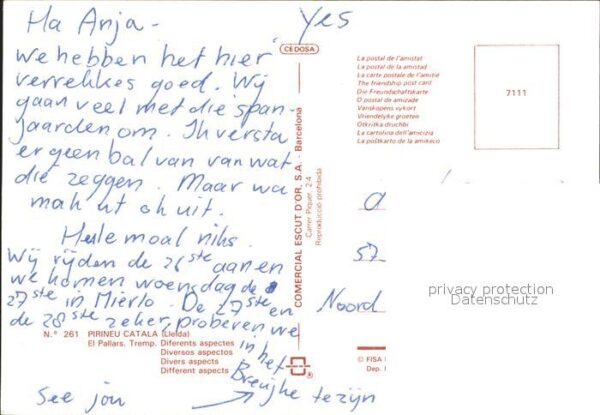 Ha Anja - Yes
We hebben het hier
verrekkes goed. Wij
gaan veel met die span-
jaarden om. Ik versta
er geen bal van van wat
die zeggen. Maar wa
mak ut ok uit.
Hele moal niks.
Wij rijden de 26ste aan en
we komen woensdag de
27ste in Mierlo. De 27ste en
de 28ste zeker, proberen we
in het
Breughe te zijn
See jou
CEDOSA
COMERCIAL ESCUT D'OR, S.A. - Barcelona
Carrer Piquer, 2-4
Reproducció prohibida
La postal de l'amistat
La postal de la amistad
La carte postale de l'amitié
The friendship post card
Die Freundschaftskarte
O postal de amizade
Vanskopens vykort
Vriendelyke groeten
Otkritka druchbi
La cartolina dell'amicizia
La poŝtkarto de la amikeco
7111
a
57
Noord
privacy protection
Datenschutz
N.º 261 PIRINEU CATALÀ (Lleida)
El Pallars. Tremp. Diferents aspectes
Diversos aspectos
Divers aspects
Different aspects
© FISA
Dep.